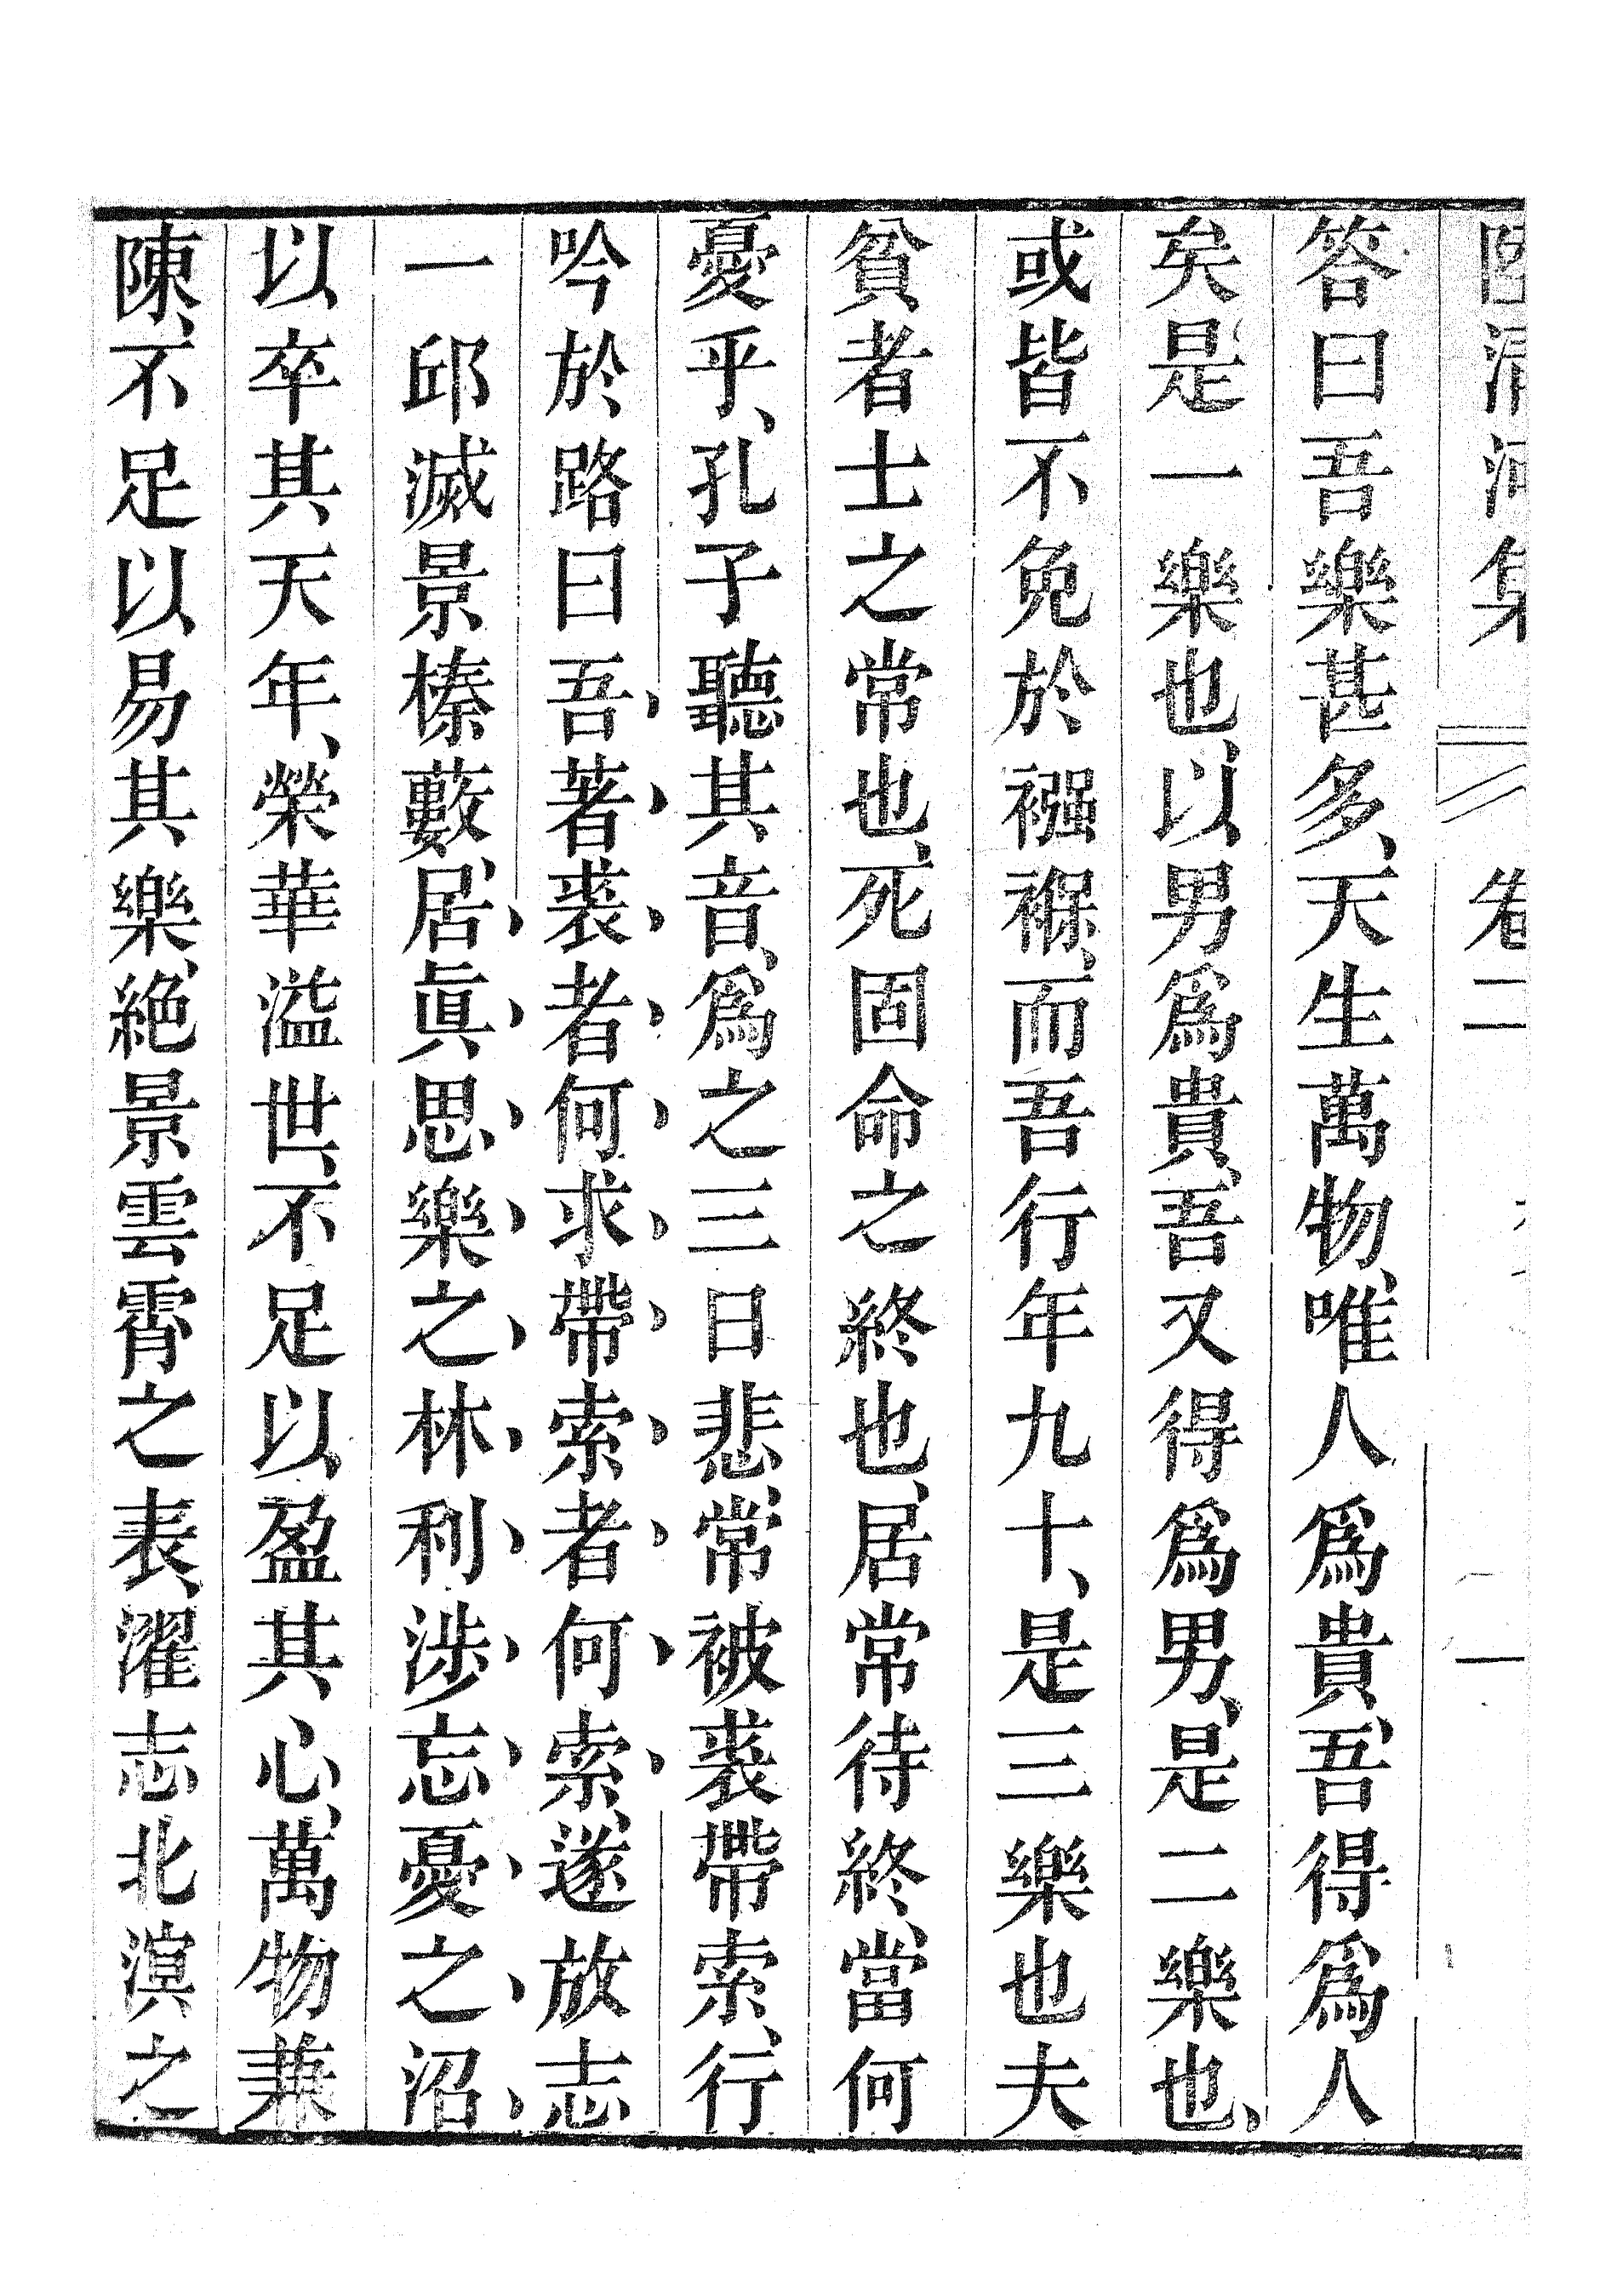 清河集 卷二 一
答曰吾樂甚多、天生萬物、唯人爲貴、吾得爲人
矣是一樂也、以男爲貴、吾又得爲男、是二樂也、
或皆不免於襁褓、而吾行年九十、是三樂也夫
貧者士之常也、死固命之終也、居常待終、當何
憂乎、孔子聽其音、爲之三日悲、常被裘帶索、行
吟於路曰吾著裘者何求帶索者何索、遂放志
一邱滅景榛藪、居眞思樂之林利涉忘憂之沼
以卒其天年、榮華溢世、不足以盈其心、萬物兼
陳、不足以易其樂、絕景雲霄之表、濯志北溟之